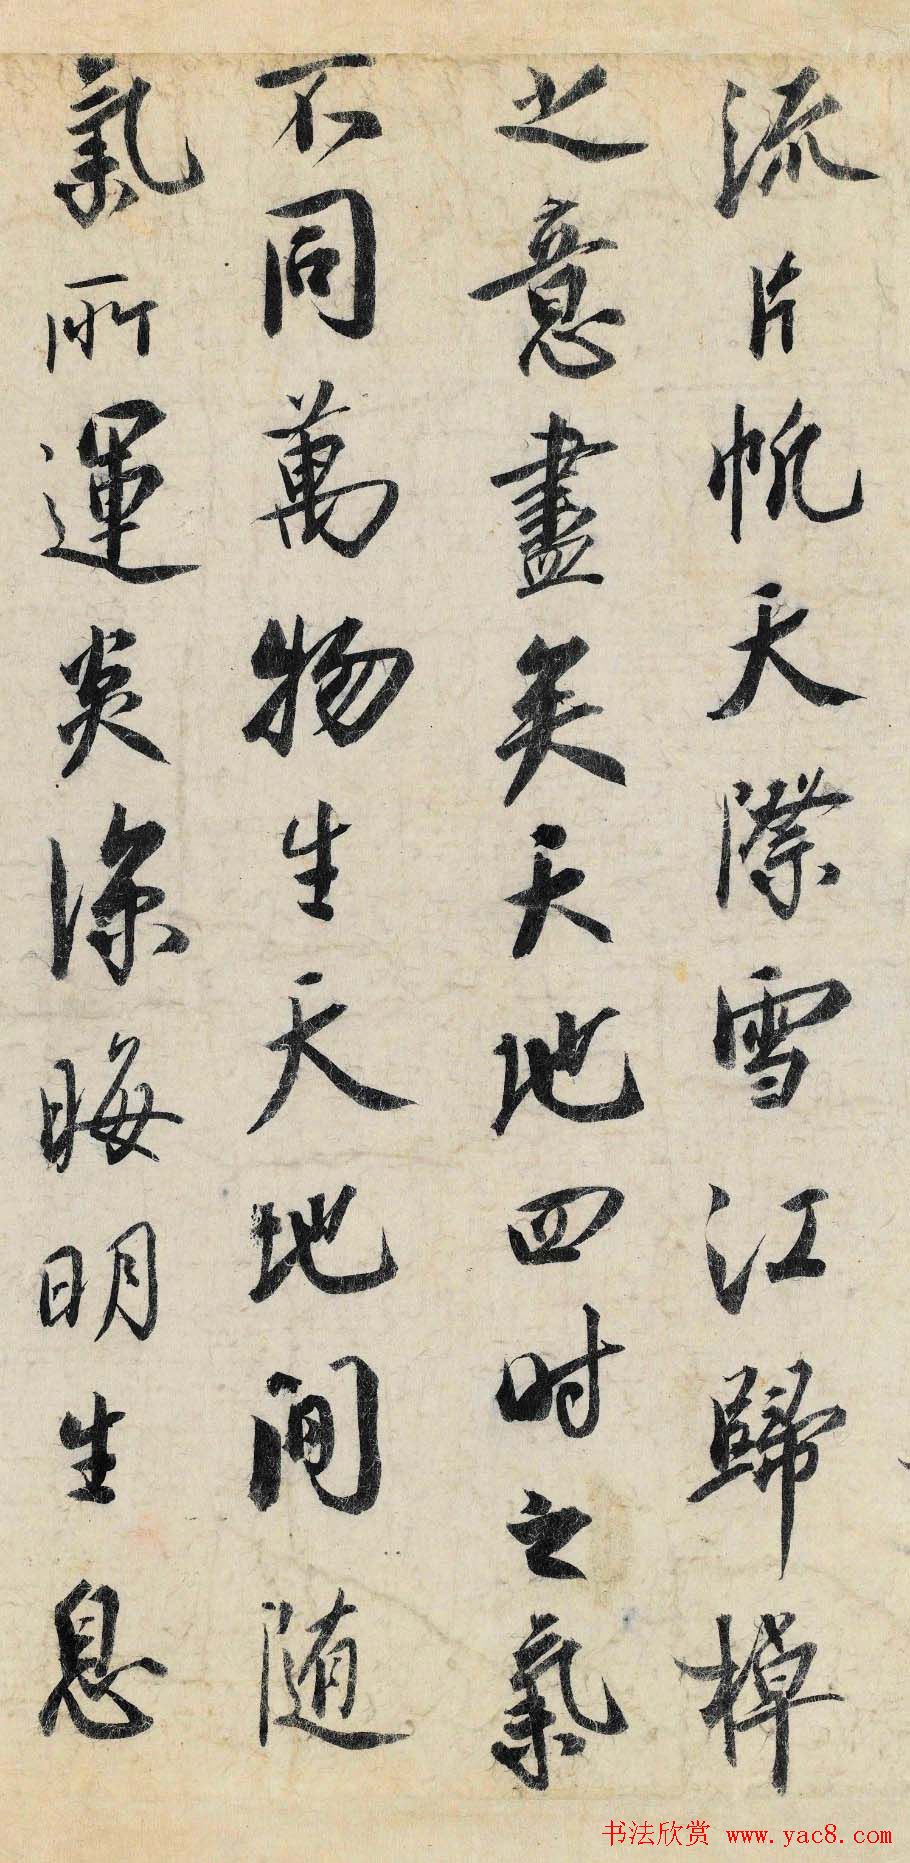 流片帆天際雪江歸棹
之意盡矣天地四时之氣
不同萬物生天地間随
氣所運炎涼晦明生息
书法欣赏 www.yac8.com